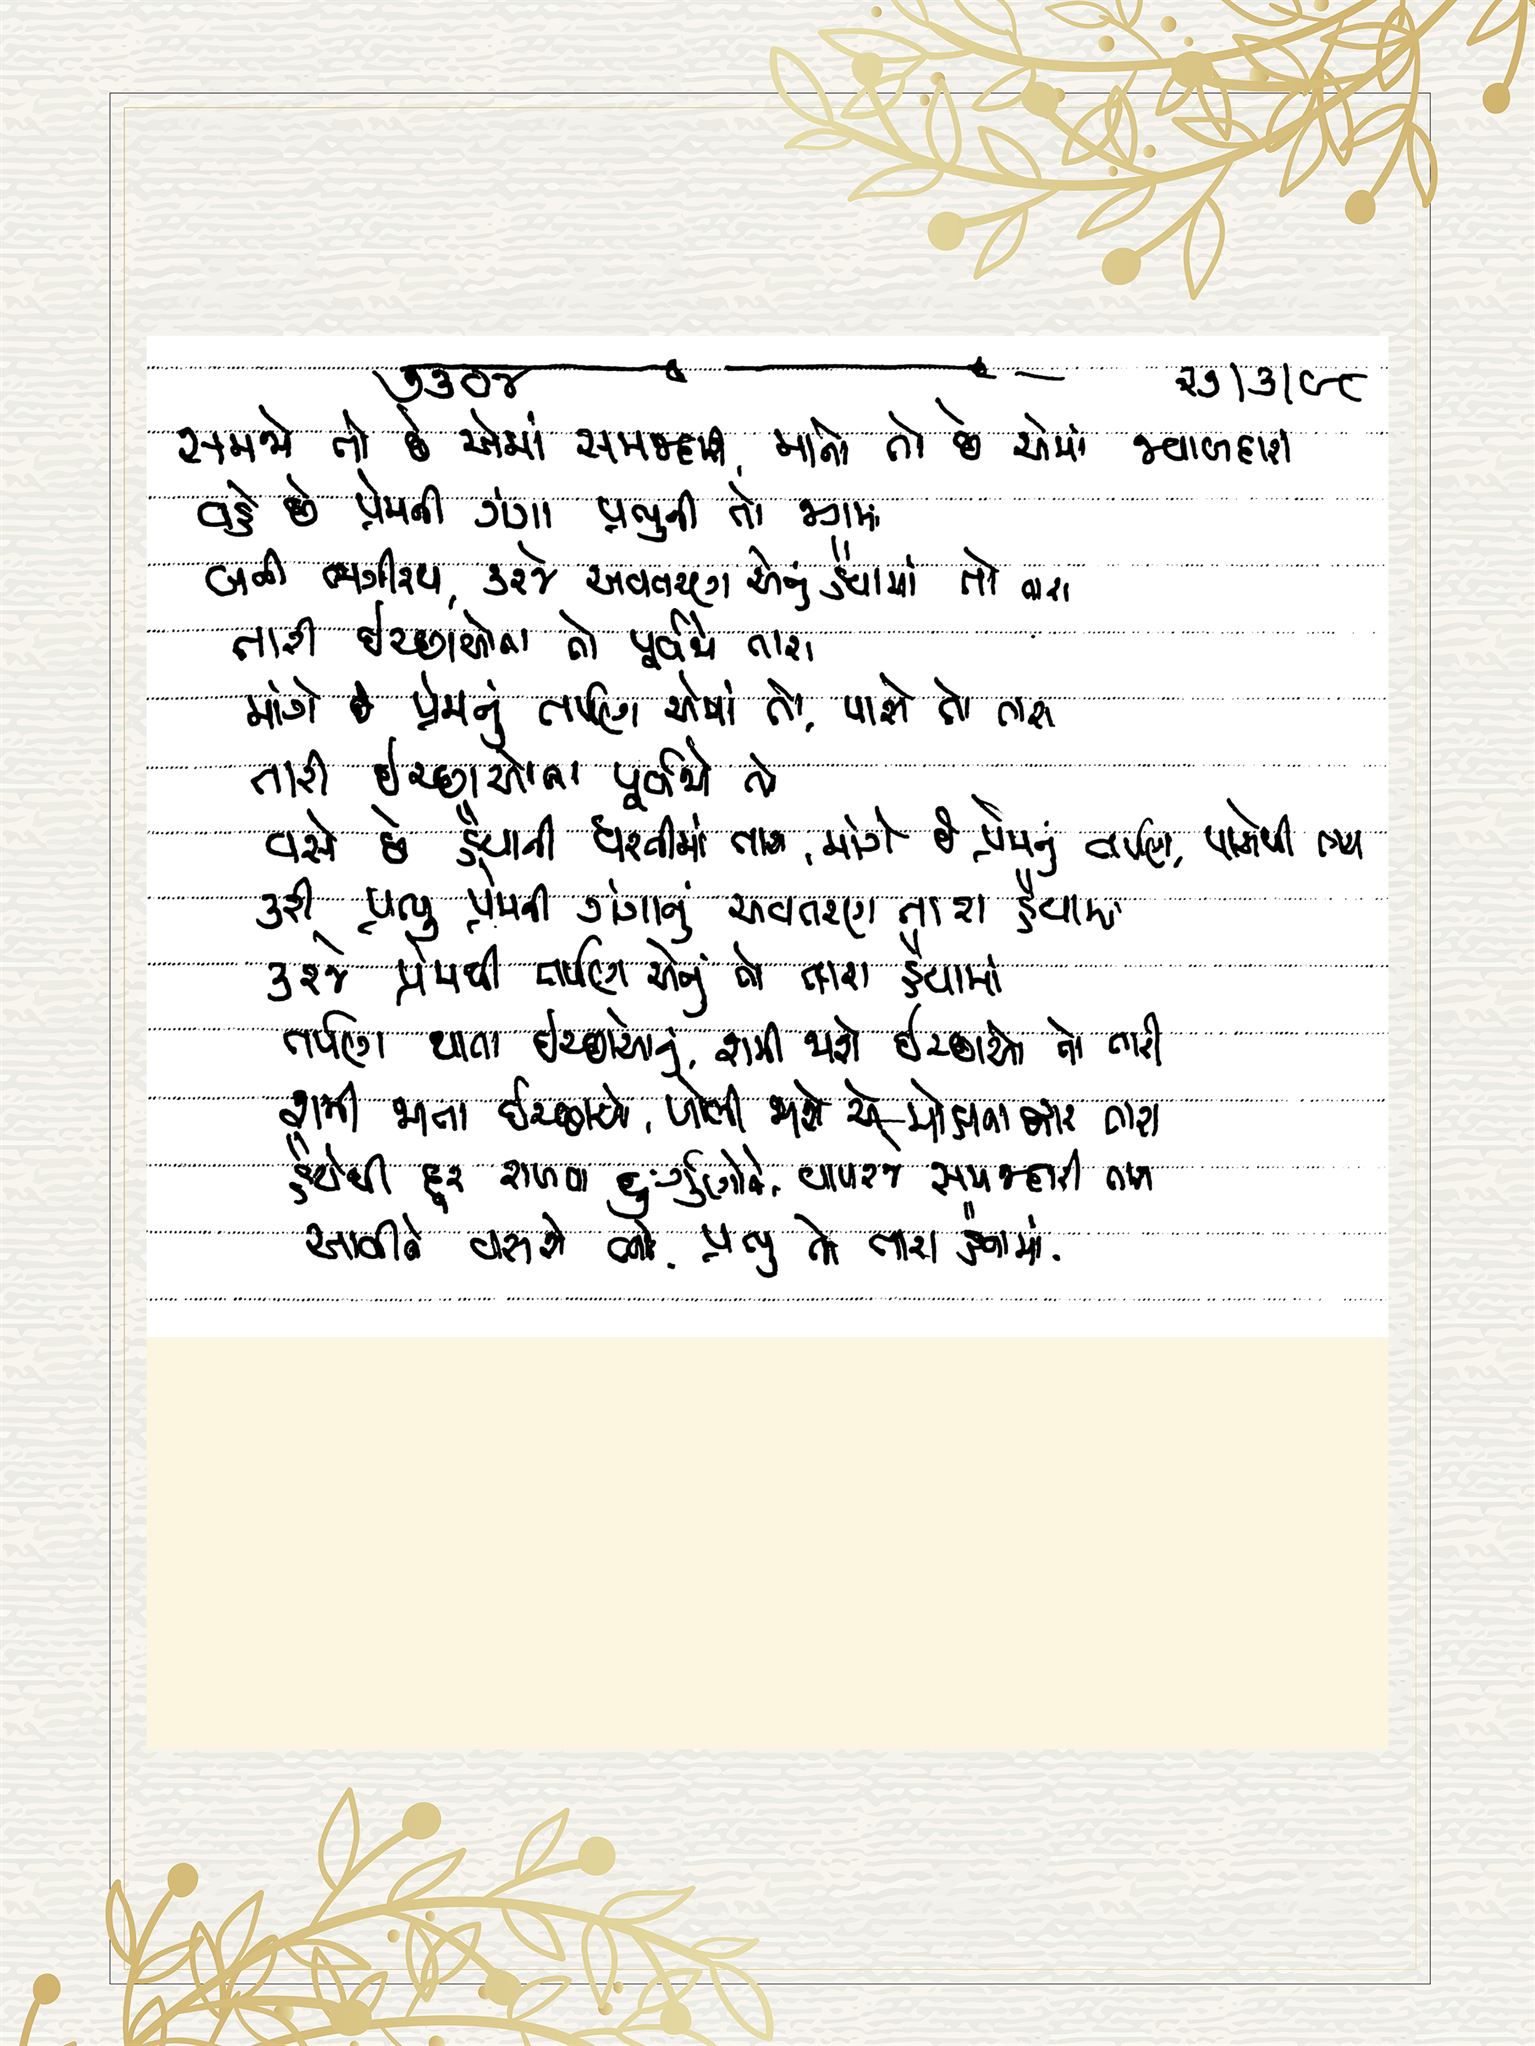 ૭૩૦૪ ૨૭/૩/૯૮
સમજો તો છે એમાં સમજદારી, માનો તો છે એમાં જવાબદારી
વહે છે પ્રેમની ગંગા પ્રભુની તો જગમાં
બની ભગીરથ, કરજે અવતરણ એનું હૈયામાં તો તારા
તારી ઇચ્છાઓના તો પૂર્વજો તારા
માંગે છે પ્રેમનું તર્પણ એમાં તો, પાસે તો તારા
તારી ઇચ્છાઓના પૂર્વજો તો
વસે છે હૈયાની ધરતીમાં તારા, માંગે છે પ્રેમનું તર્પણ, પાસેથી
કરી પ્રભુ પ્રેમની ગંગાનું અવતરણ તારા હૈયામાં
કરજે પ્રેમથી તર્પણ એનું તો તારા હૈયામાં
તર્પણ થાતા ઇચ્છાઓનું, શમી જાશે ઇચ્છાઓ તો તારી
શમી જાતા ઇચ્છાઓ, ખોલી જાશે એ મોક્ષના દ્વાર તારા
હૈયેથી દૂર રાખવા દુર્ગુણોને, વાપરજે સમજદારી
આવીને વસશે પ્રભુ તો તારા હૈયામાં.